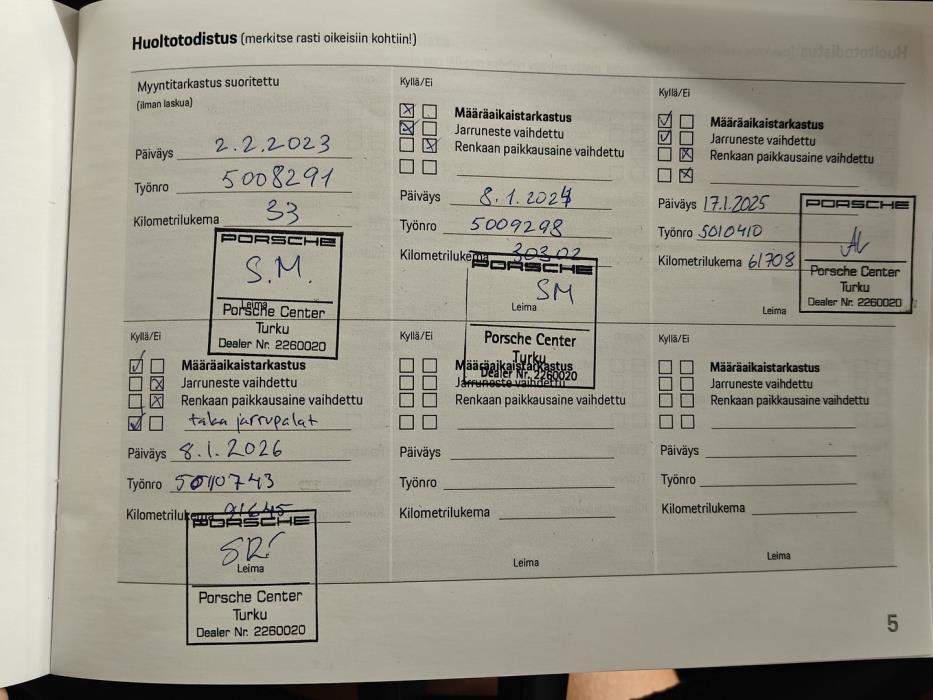 Huoltotodistus (merkitse rasti oikeisiin kohtiin!)
Myyntitarkastus suoritettu
(ilman laskua)
Päiväys 2.2.2023
Työnro 5008291
Kilometrilukema 33
PORSCHE
S.M.
Leima
Porsche Center
Turku
Dealer Nr. 2260020
Kyllä/Ei
Määräaikaistarkastus
Jarruneste vaihdettu
Renkaan paikkausaine vaihdettu
Päiväys 8.1.2024
Työnro 5009298
Kilometrilukema 30302
PORSCHE
SM
Leima
Porsche Center
Turku
Dealer Nr. 2260020
Kyllä/Ei
Määräaikaistarkastus
Jarruneste vaihdettu
Renkaan paikkausaine vaihdettu
Päiväys 17.1.2025
Työnro 5010410
Kilometrilukema 61708
PORSCHE
Leima
Porsche Center
Turku
Dealer Nr. 2260020
Kyllä/Ei
Määräaikaistarkastus
Jarruneste vaihdettu
Renkaan paikkausaine vaihdettu
taka jarrupalat
Päiväys 8.1.2026
Työnro
Kilometrilukema 91645
PORSCHE
Leima
Porsche Center
Turku
Dealer Nr. 2260020
Kyllä/Ei
Määräaikaistarkastus
Jarruneste vaihdettu
Renkaan paikkausaine vaihdettu
Päiväys
Työnro
Kilometrilukema
Leima
Kyllä/Ei
Määräaikaistarkastus
Jarruneste vaihdettu
Renkaan paikkausaine vaihdettu
Päiväys
Työnro
Kilometrilukema
Leima
5